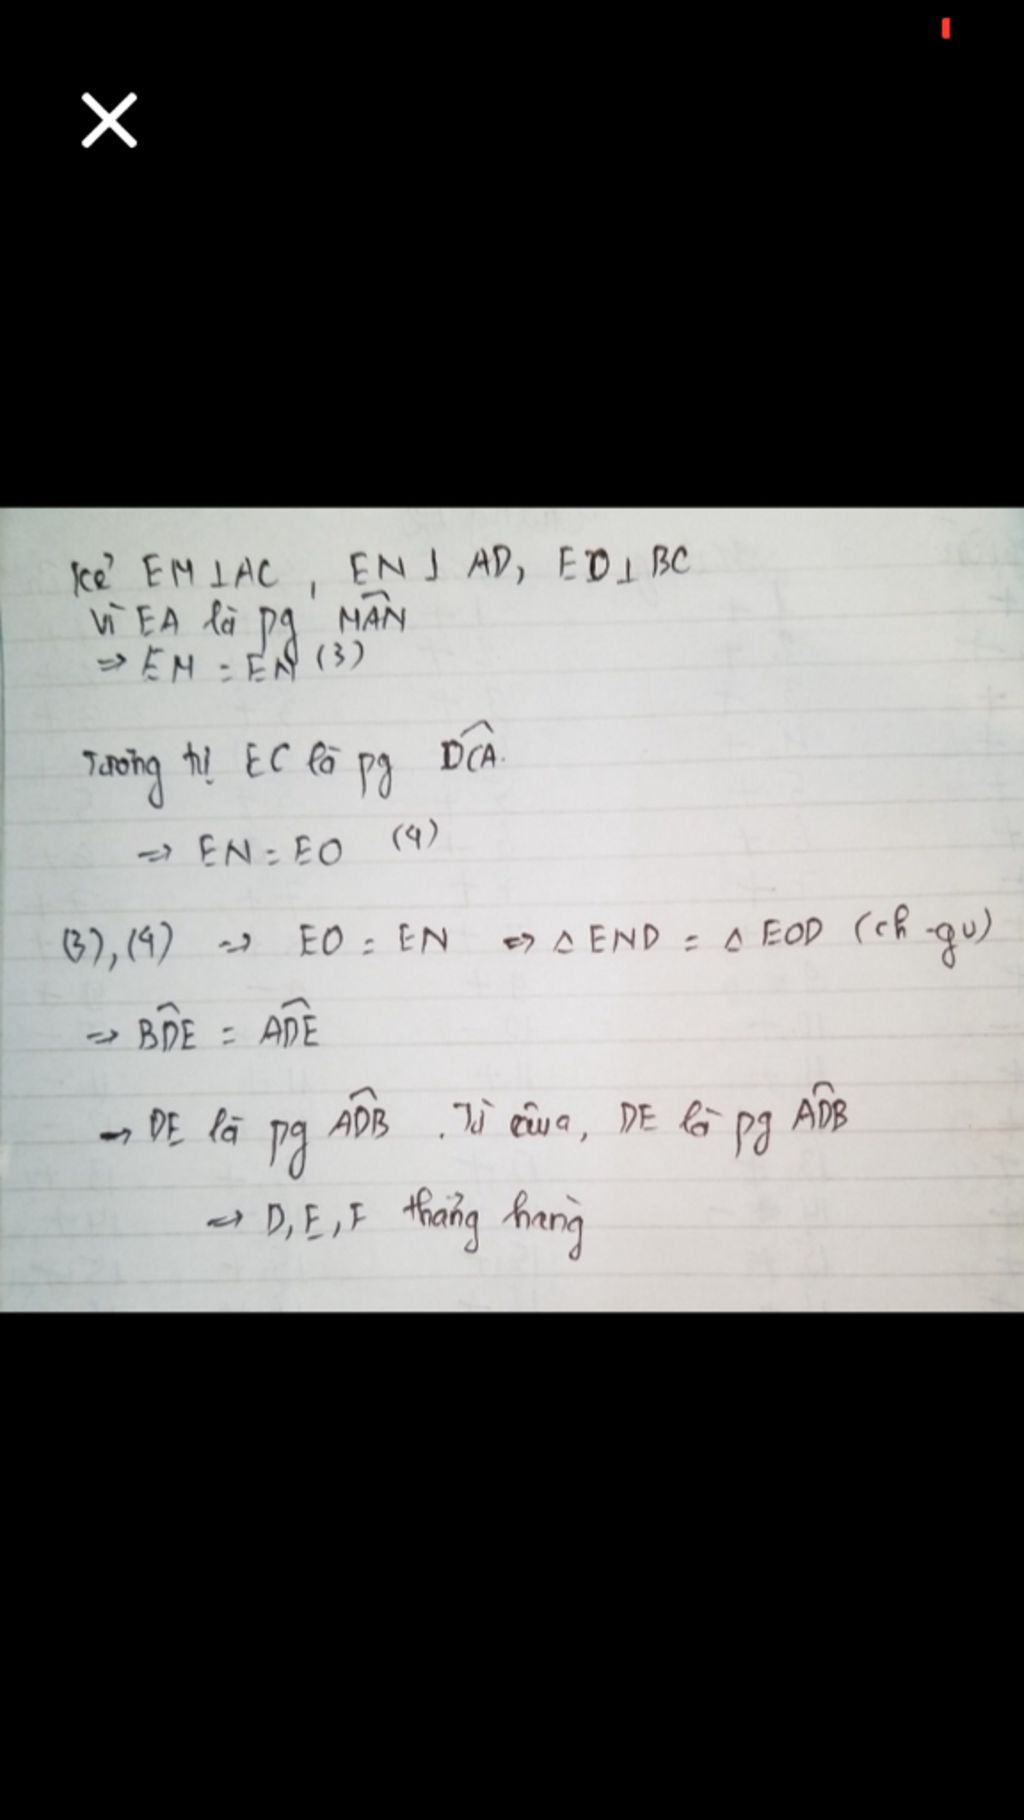 Kẻ EM⊥AC, EN⊥AD, EO⊥BC
Vì EA là pg MÂN
⇒ EM = EN (3)
Tương tự EC là pg DĈA.
⇒ EN = EO (4)
(3), (4) ⇒ EO = EN ⇒ △END = △EOD (ch-gv)
⇒ BD̂E = AD̂E
→ DE là pg AD̂B. Từ câu a, DE là pg AD̂B
⇒ D, E, F thẳng hàng